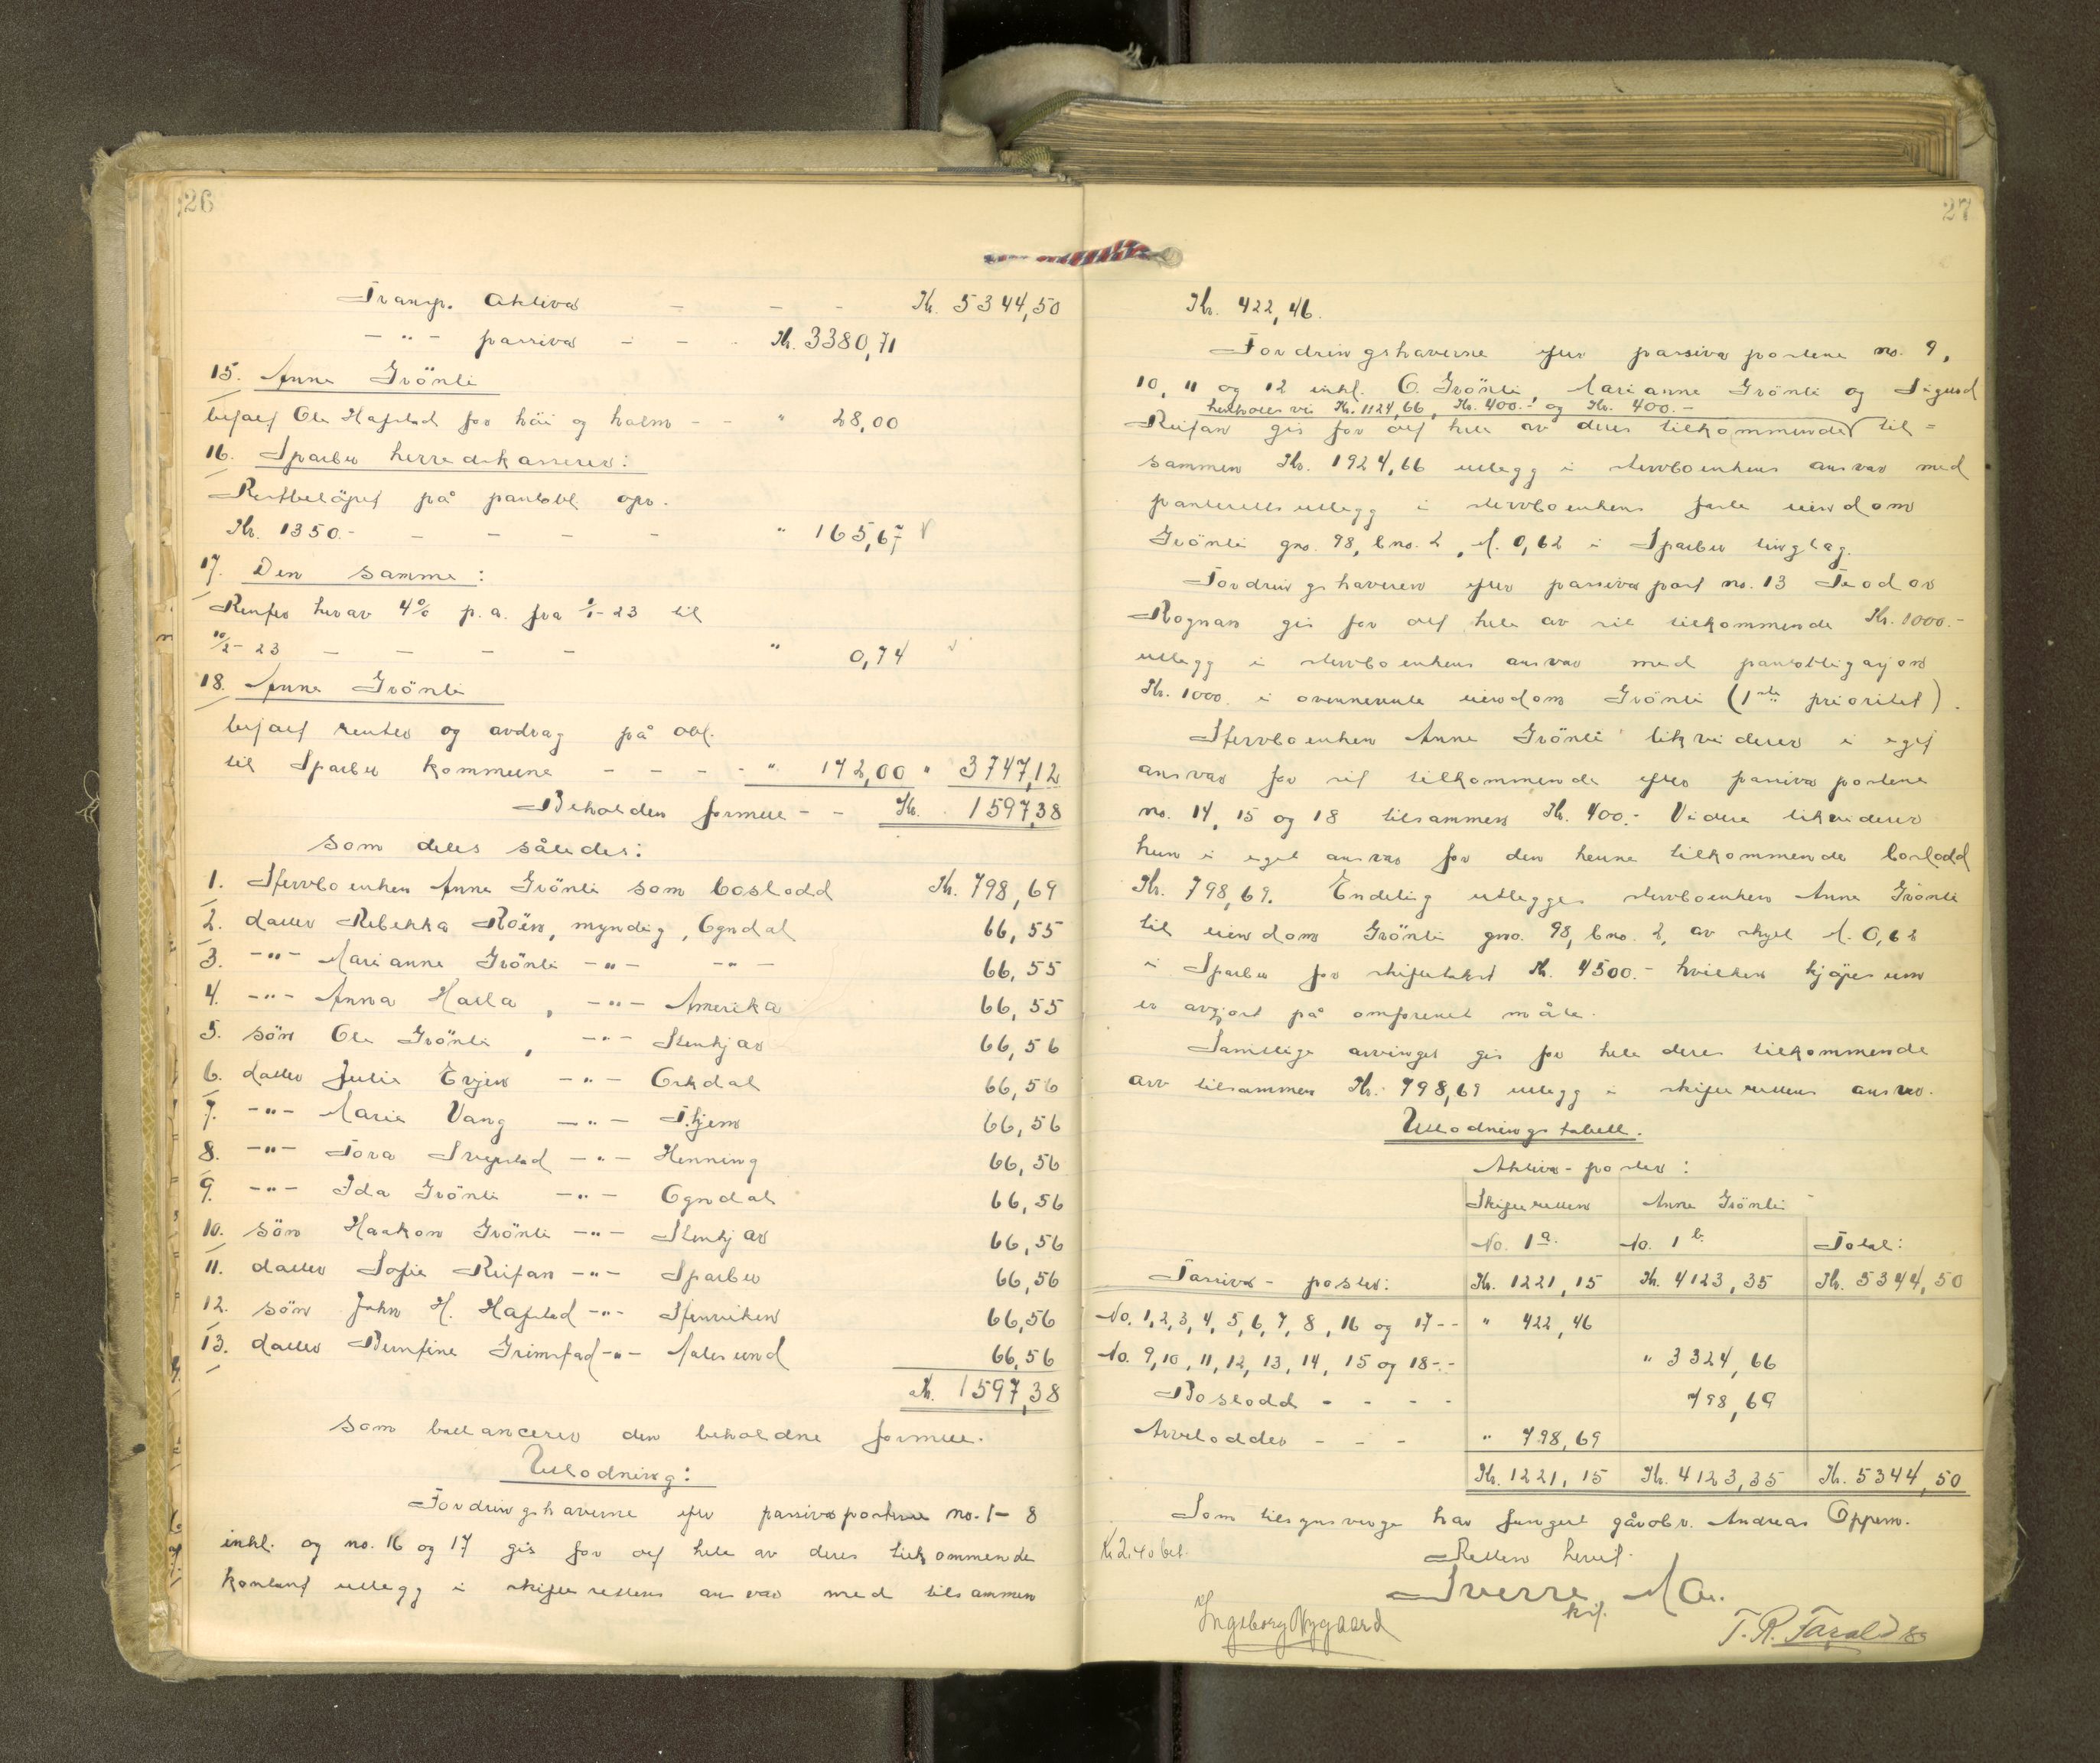 26
Transp. Aktiva - - - Kr. 5344,50
- " - passiva - - - Kr. 3380,71
15. Anne Grönli
betalt Ole Hafstad for höi og halm - - " 28,00
16. Sparbu herredskasserer:
Restbelöpet på pantobl. opr.
Kr. 1350.- - - - - " 165,67
17. Den samme:
Renter herav 4% p.a. fra 1/1-23 til
10/2-23 - - - - " 0,74
18. Anne Grönli
betalt renter og avdrag på obl.
til Sparbu kommune - - - - " 172,00 " 3747,12
Beholden formue - - Kr. 1597,38
som deles således:
1. Stervboenken Anne Grönli som boslodd Kr. 798,69
2. datter Rebekka Röen, myndig, Ogndal 66,55
3. -"- Marianne Grönli -"- -"- 66,55
4. -"- Anna Halla, -"- Amerika 66,55
5. sön Ole Grönli, -"- Stenkjær 66,56
6. datter Julie Evjen -"- Orkdal 66,56
7. -"- Marie Vang -"- T.hjem 66,56
8. -"- Tora -"- Henning 66,56
9. -"- Ida Grönli -"- Ogndal 66,56
10. sön Haakon Grönli -"- Stenkjær 66,56
11. datter Sofie Reitan -"- Sparbu 66,56
12. sön John H. Hafstad -"- Stenviken 66,56
13. datter Berntine Grimstad -"- Aalesund 66,56
Kr. 1597,38
som ballancerer den beholdne formue.
Utlodning:
Fordringshaverne efter passivaposterne no. 1-8
inkl. og no. 16 og 17 gis for det hele av deres tilkommende
kontant utlegg i skifterettens ansvar med tilsammen
27
Kr. 422,46.
Fordringshaverne efter passiva postene no. 9,
10, 11 og 12 inkl. O. Grönli, Marianne Grönli og Sigurd
henholdsvis Kr. 1124,66, Kr. 400.- og Kr. 400.-
Reitan gis for det hele av deres tilkommende til=
sammen Kr. 1924,66 utlegg i stervboenkens ansvar med
panteretts utlegg i stervboenkens faste eiendom
Grönli gno. 98, bno. 2, M. 0,62 i Sparbu tinglag.
Fordringshaveren efter passiva post no. 13 Teodor
Rognan gis for det hele av sit tilkommende Kr. 1000.-
utlegg i stervboenkens ansvar med pantobligasjon
Kr. 1000. i ovennevnte eiendom Grönli (1ste prioritet).
Stervboenken Anne Grönli likviderer i eget
ansvar for sit tilkommende efter passiva postene
no. 14, 15 og 18 tilsammen Kr. 400.- Videre likviderer
hun i eget ansvar for den henne tilkommende boslodd
Kr. 798,69. Endelig utlegges stervboenken Anne Grönli
til eiendom Grönli gno. 98, bno. 2, av skyld M. 0,62
i Sparbu for skiftetakst Kr. 4500.- hvilken kjöpesum
er avgjort på omforenet måte.
Samtlige arvinger gis for hele deres tilkommende
arv tilsammen Kr. 798,69 utlegg i skifterettens ansvar.
Utlodningstabell.
Aktiva-poster:
Skifteretten Anne Grönli
No. 1a. No. 1b. Total:
Passiva-poster: Kr. 1221,15 Kr. 4123,35 Kr. 5344,50
No. 1,2,3,4,5,6,7,8,16 og 17-- " 422,46
No. 9,10,11,12,13,14,15 og 18-- " 3324,66
Boslodd - - - - 798,69
Arvelodder - - - " 798,69
Kr. 1221,15 Kr. 4123,35 Kr. 5344,50
Som tilsynsverge har fungert gårdbr. Andreas Oppem.
Retten hevet.
Sverre
Ingeborg Nygaard